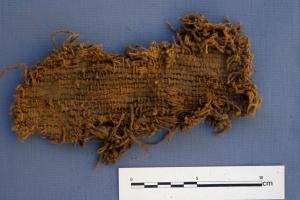 0 5 10
cm